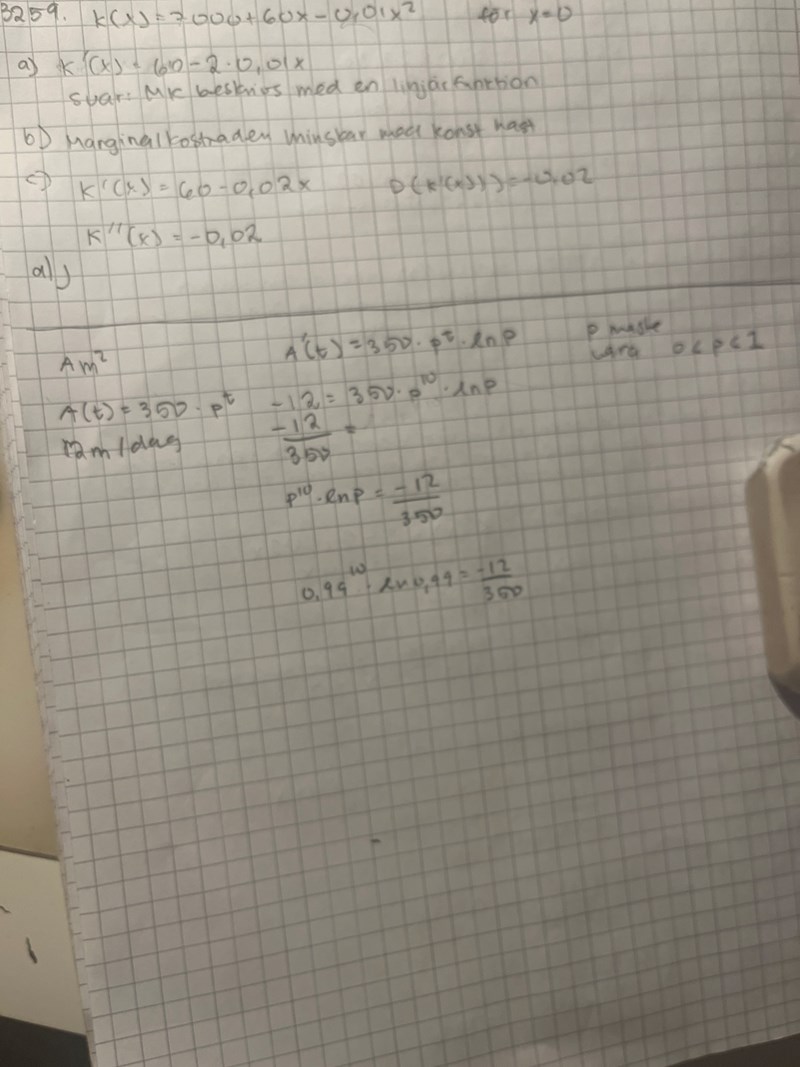 3259. K(x) = 7000 + 60x - 0,01x² för x=0
a) K'(x) = 60 - 2·0,01x
svar: MK beskrivs med en linjär funktion
b) Marginalkostnaden minskar med konst hast
c) K'(x) = 60 - 0,02x D(K'(x)) = -0,02
K''(x) = -0,02
a)
A m² A'(t) = 350 · p^t · ln p p måste
vara 0 < p < 1
A(t) = 350 · p^t -12 = 350 · p^10 · ln p
12m/dag -12/350 =
p^10 · ln p = -12/350
0,99^10 · ln 0,99 = -12/350